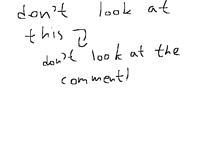 don't look at
this
don't look at the
comment!